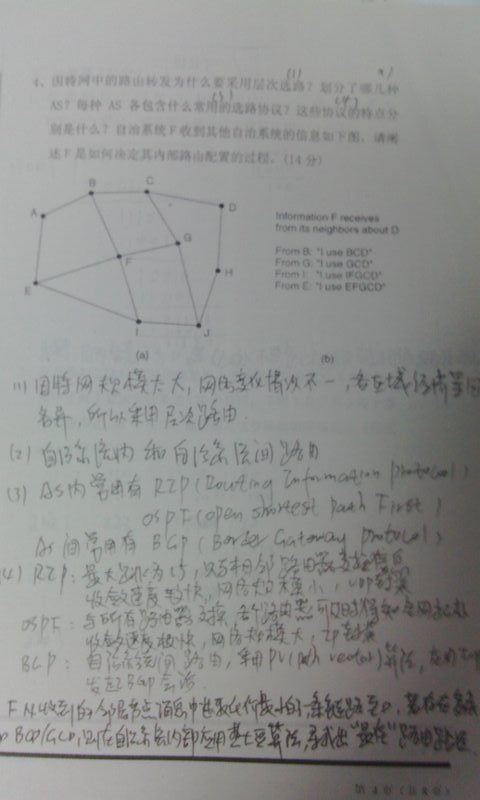 (1) (2)
4、因特网中的路由转发为什么要采用层次选路？划分了哪几种
(3) (4)
AS？每种 AS 各包含什么常用的选路协议？这些协议的特点分
别是什么？自治系统 F 收到其他自治系统的信息如下图，请阐
述 F 是如何决定其内部路由配置的过程。(14 分)
A
B
C
D
E
F
G
H
I
J
(a)
Information F receives
from its neighbors about D
From B: "I use BCD"
From G: "I use GCD"
From I: "I use IFGCD"
From E: "I use EFGCD"
(b)
(1) 因特网规模太大，网络变化情况不一，各区域
各异，所以采用层次路由.
(2) 自治系统内 和 自治系统间 路由
(3) AS内常用有 RIP (Routing Information protocol)
OSPF (open shortest path First)
AS间常用有 BGP (Border Gateway protocol)
(4) RIP: 最大跳数为15, 只与相邻路由器交换信息
收敛速度较快，网络规模小，UDP封装
OSPF: 与所有路由器交换，各路由器
收敛速度极快，网络规模大，IP封装
BGP: 自治系统间路由，采用PV(path vector)算法，
发起BGP会话.
F从收到的邻居节点消息中选取代价最小的一条链路至D，
BCD/GCD, 则在自治系统内部应用 算法，寻找出"最佳"路由路径
第 4 页（共 8 页）